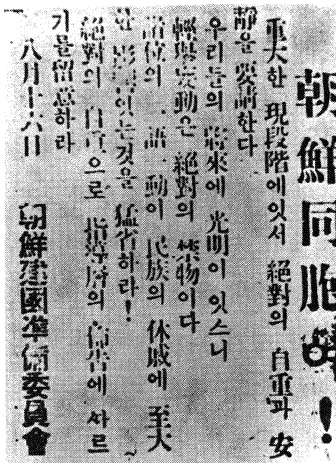 朝鮮同胞여!
重大한 現段階에잇서 絕對의 自重과 安
靜을 要請한다
우리들의 將來에 光明이 잇스니
輕擧妄動은 絕對의 禁物이다
諸位의 一語一動이 民族의 休戚에 至大
한 影響잇는것을 猛省하라!
絕對의 自重으로 指導層의 布告에 싸르
기를 留意하라
八月十六日
朝鮮建國準備委員會